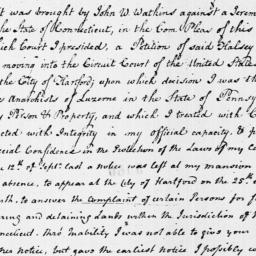 it was brought by John W. Watkins against a Jerem
the State of Connecticut, in the Com. Pleas of this
ich Court I presided, a Petition of said Halsey
moving into the Circuit Court of the United States
the City of Hartford; upon which decision I was th
e Anarchists of Luzerne in the State of Pennsy
y Person & Property, and which I treated with C
cted with Integrity in my official capacity, &
cial Confidence in the Protection of the Laws of my Co
12th of Sept. last a notice was left at my mansion
absence, to appear at the City of Hartford on the 25th
th, to answer the complaint of certain Persons for
ring and detaining Lands within the Jurisdiction of
necticut. tho' Inability I was not able to give your
er notice, but gave the earliest notice I possibly co